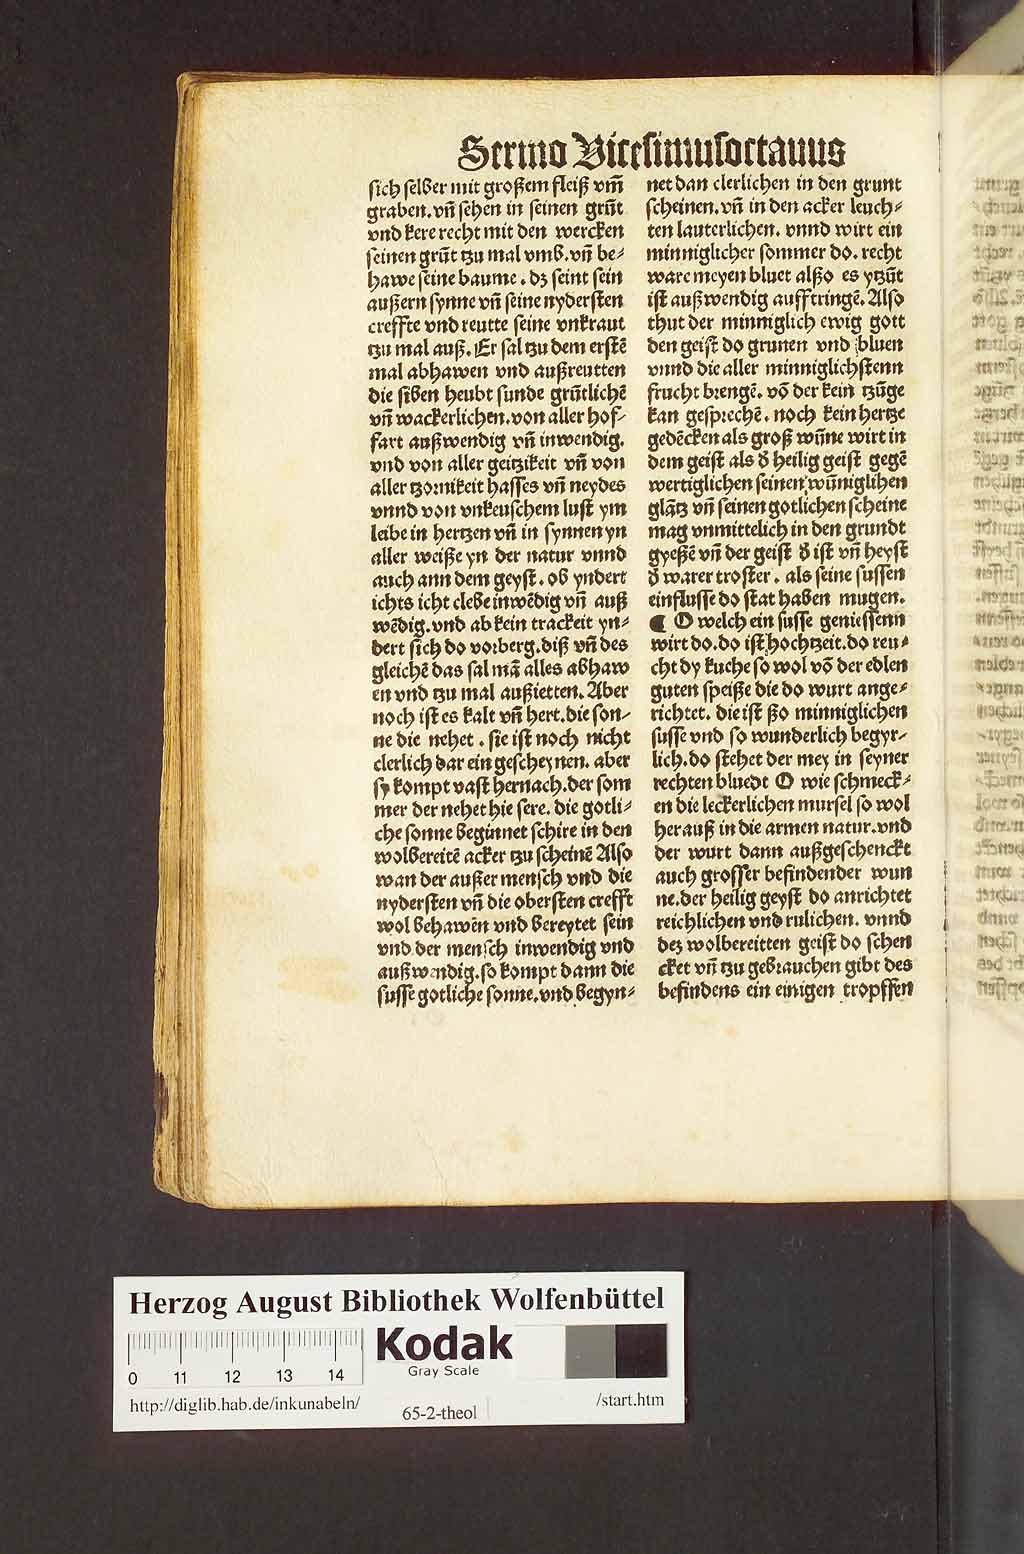 Sermo Vicesimusoctauus
sich selber mit großem fleiß vm̄
graben. vn̄ sehen in seinen grūt
vnd kere recht mit den wercken
seinen grūt tzu mal vmb. vn̄ be-
hawe seine baume. dz seint sein
außern synne vn̄ seine nydersten
creffte vnd reutte seine vnkraut
tzu mal auß. Er sal tzu dem erstē
mal abhawen vnd außreutten
die siben heubt sunde grūtlichē
vn̄ wackerlichen. von aller hof-
fart außwendig vn̄ inwendig.
vnd von aller geitzikeit vn̄ von
aller tzornikeit hasses vn̄ neydes
vnnd von vnkeuschem lust ym
leibe in hertzen vn̄ in synnen yn
aller weiße yn der natur vnnd
auch ann dem geyst. ob yndert
ichts icht clebe inwēdig vn̄ auß
wēdig. vnd ab kein trackeit yn-
dert sich do vorberg. diß vn̄ des
gleichē das sal mā alles abhaw
en vnd tzu mal außietten. Aber
noch ist es kalt vn̄ hert. die son-
ne die nehet. sie ist noch nicht
clerlich dar ein gescheynen. aber
sy kompt vast hernach. der som
mer der nehet hie sere. die gotli-
che sonne beginnet schire in den
wolbereitē acker tzu scheinē Also
wan der außer mensch vnd die
nydersten vn̄ die obersten crefft
wol behawēn vnd bereytet sein
vnd der mensch inwendig vnd
außwendig. so kompt dann die
susse gotliche sonne. vnd begyn-
net dan clerlichen in den grunt
scheinen. vn̄ in den acker leuch-
ten lauterlichen. vnnd wirt ein
minniglicher sommer do. recht
ware meyen bluet alßo es ytzūt
ist außwendig aufftringē. Also
thut der minniglich ewig gott
den geist do grunen vnd bluen
vnnd die aller minniglichstenn
frucht brengē. vō der kein tzūge
kan gesprechē. noch kein hertze
gedēcken als groß wn̄ne wirt in
dem geist als d̄ heilig geist gegē
wertiglichen seinen wūniglihen
glātz vn̄ seinen gotlichen scheine
mag vnmittelich in den grundt
gyeßē vn̄ der geist d̄ ist vn̄ heyst
d̄ warer troster. als seine sussen
einflusse do stat haben mugen.
¶ O welch ein susse geniessenn
wirt do. do ist hochtzeit. do reu-
cht dy kuche so wol vō der edlen
guten speiße die do wurt ange-
richtet. die ist ßo minniglichen
susse vnd so wunderlich begyr-
lich. do stehet der mey in seyner
rechten bluedt O wie schmeck-
en die leckerlichen mursel so wol
her auß in die armen natur. vnd
der wurt dann außgeschenckt
auch grosser befindender wun
ne. der heilig geyst do anrichtet
reichlichen vnd rulichen. vnnd
dez wolbereitten geist do schen
cket vn̄ tzu gebrauchen gibt des
befindens ein einigen tropffen
Herzog August Bibliothek Wolfenbüttel
Kodak
Gray Scale
0 11 12 13 14
http://diglib.hab.de/inkunabeln/
65-2-theol
/start.htm